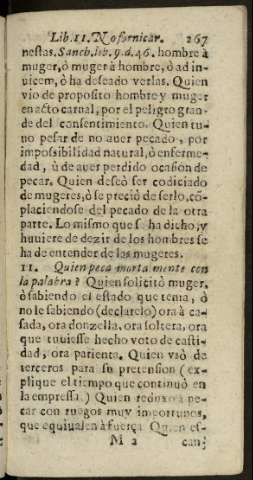 Lib. 11. No fornicar. 267
nestas. Sanch. lib. 9. d. 46. hombre à
muger, ò muger à hombre, ò ad in-
uicem, ò ha deseado verlas. Quien
vio de proposito hombre y muger
en acto carnal, por el peligro gran-
de del consentimiento. Quien tu-
uo pesar de no auer pecado, por
impossibilidad natural, ò enferme-
dad, ù de auer perdido ocasion de
pecar. Quien deseò ser codiciado
de mugeres, ò se preciò de serlo, cō-
placiendose del pecado de la otra
parte. Lo mismo que se ha dicho, y
huuiere de dezir de los hombres se
ha de entender de las mugeres.
11. Quien peca mortalmente con
la palabra? Quien solicitò muger,
ò sabiendo el estado que tenia, ò
no le sabiendo (declarelo) ora à ca-
sada, ora donzella, ora soltera, ora
que tuuiesse hecho voto de casti-
dad, ora parienta. Quien vsò de
terceros para su pretension (ex-
plique el tiempo que continuò en
la empressa.) Quien reduxo à pe-
car con ruegos muy importunos,
que equiualen à fuerça. Quien es-
M 2 can-